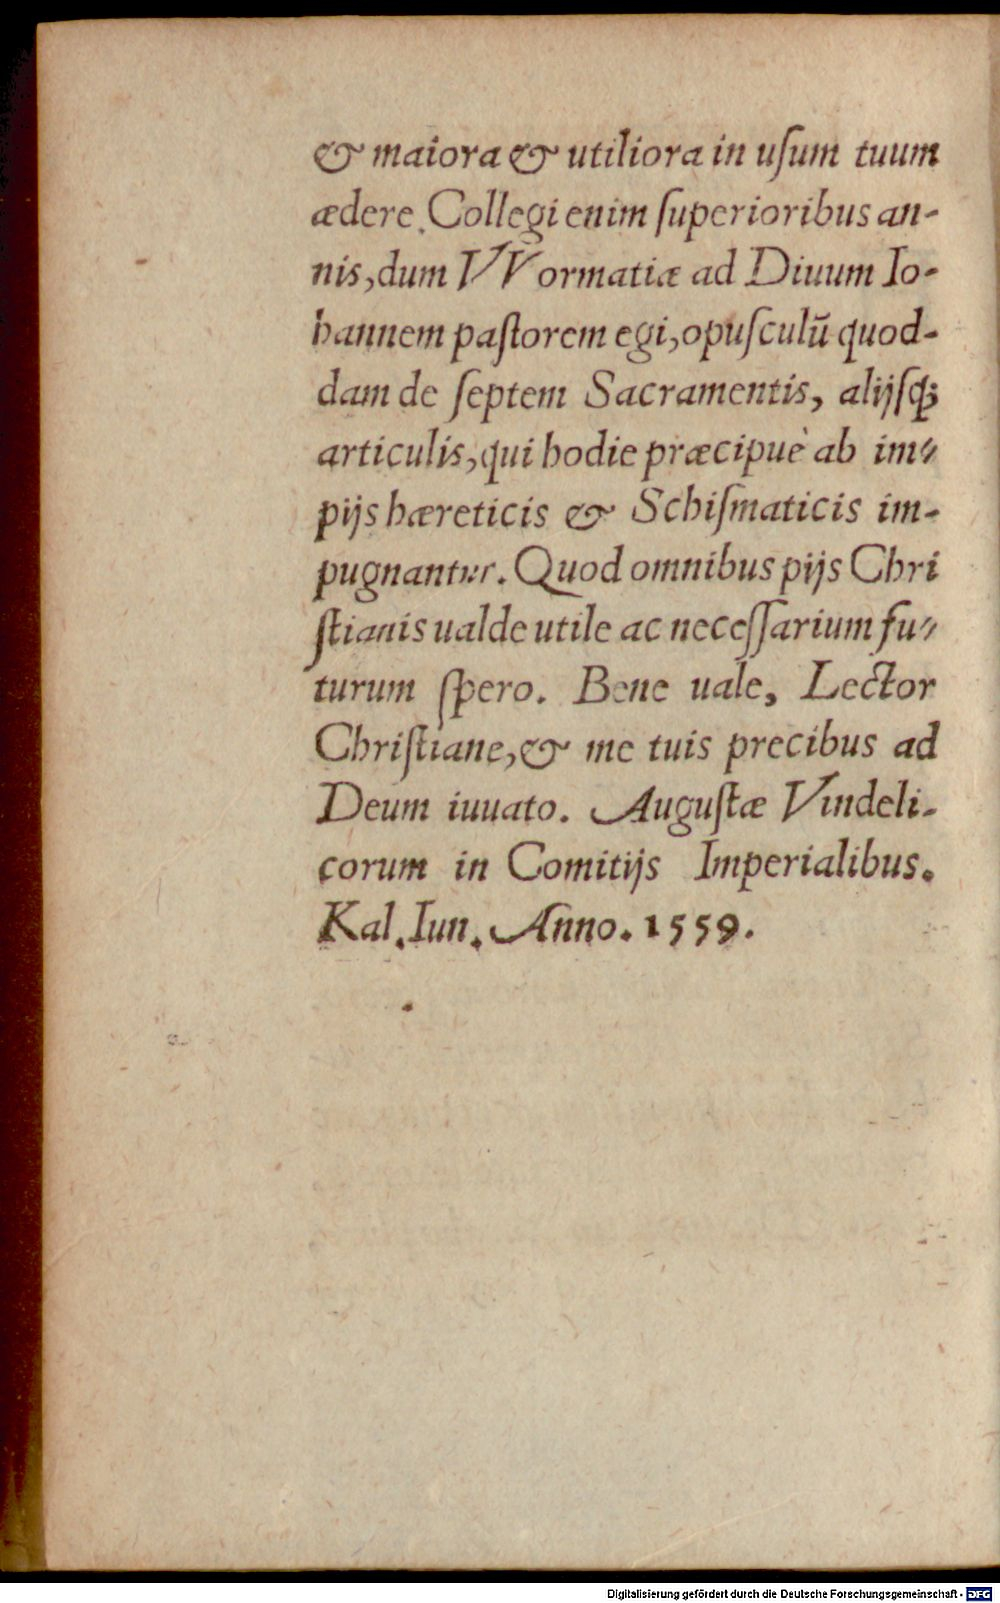 & maiora & utiliora in uſum tuum
ædere. Collegi enim ſuperioribus an-
nis, dum VVormatiæ ad Diuum Io-
hannem paſtorem egi, opuſculū quod-
dam de ſeptem Sacramentis, alijſq́;
articulis, qui hodie præcipuè ab im-
pijs hæreticis & Schiſmaticis im-
pugnantur. Quod omnibus pijs Chri
ſtianis ualde utile ac neceſſarium fu-
turum ſpero. Bene uale, Lector
Chriſtiane, & me tuis precibus ad
Deum iuuato. Auguſtæ Vindeli-
corum in Comitijs Imperialibus.
Kal. Iun. Anno. 1559.
Digitalisierung gefördert durch die Deutsche Forschungsgemeinschaft - DFG